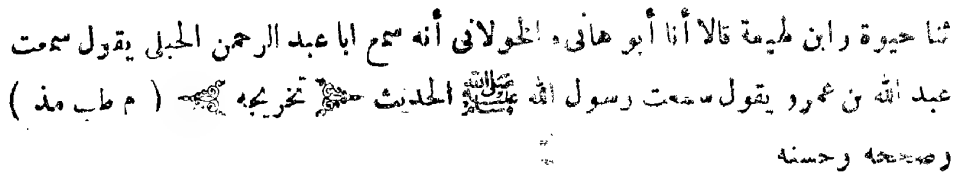 ثنا حيوة وابن لهيعة قالا أنا أبو هانىء الخولانى أنه سمع ابا عبد الرحمن الحبلى يقول سمعت
عبد الله بن عمرو يقول سمعت رسول الله ﷺ الحديث ﴿ تخريجه ﴾ ( م طب مذ )
وصححه وحسنه